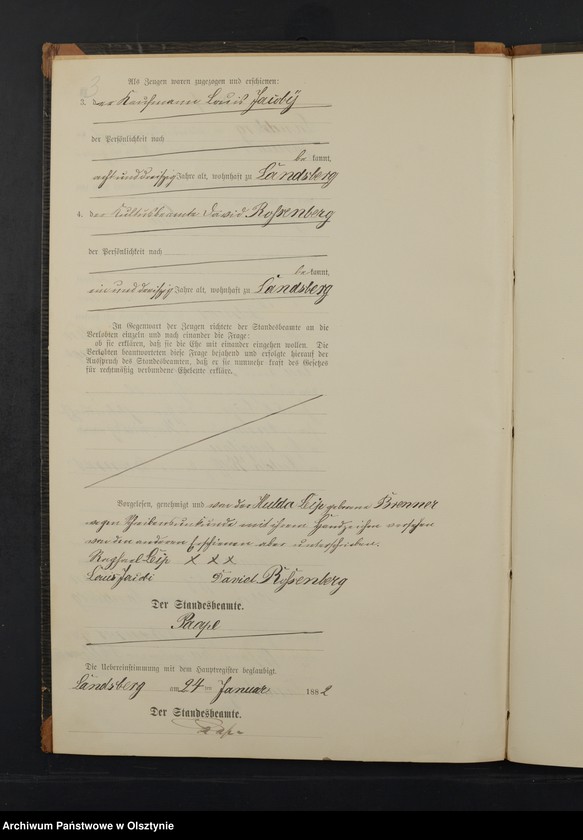 3
Als Zeugen waren zugezogen und erschienen:
3. der Kaufmann Louis Jacoby
der Persönlichkeit nach
be kannt,
achtunddreißig Jahre alt, wohnhaft zu Landsberg
4. der Kultusbeamte David Rossenberg
der Persönlichkeit nach
be kannt,
einunddreißig Jahre alt, wohnhaft zu Landsberg
In Gegenwart der Zeugen richtete der Standesbeamte an die
Verlobten einzeln und nach einander die Frage:
ob sie erklären, daß sie die Ehe mit einander eingehen wollen. Die
Verlobten beantworteten diese Frage bejahend und erfolgte hierauf der
Ausspruch des Standesbeamten, daß er sie nunmehr kraft des Gesetzes
für rechtmäßig verbundene Eheleute erkläre.
Vorgelesen, genehmigt und von der Hulda Lip geborene Brenner
wegen Schreibensunkunde mit ihrem Handzeichen versehen
von den anderen Erschienen aber unterschrieben.
Raphael Lip X X X
Louis David Rossenberg
Der Standesbeamte.
Paape
Die Uebereinstimmung mit dem Hauptregister beglaubigt.
Landsberg am 24 ten Januar 1882
Der Standesbeamte.
Archiwum Państwowe w Olsztynie